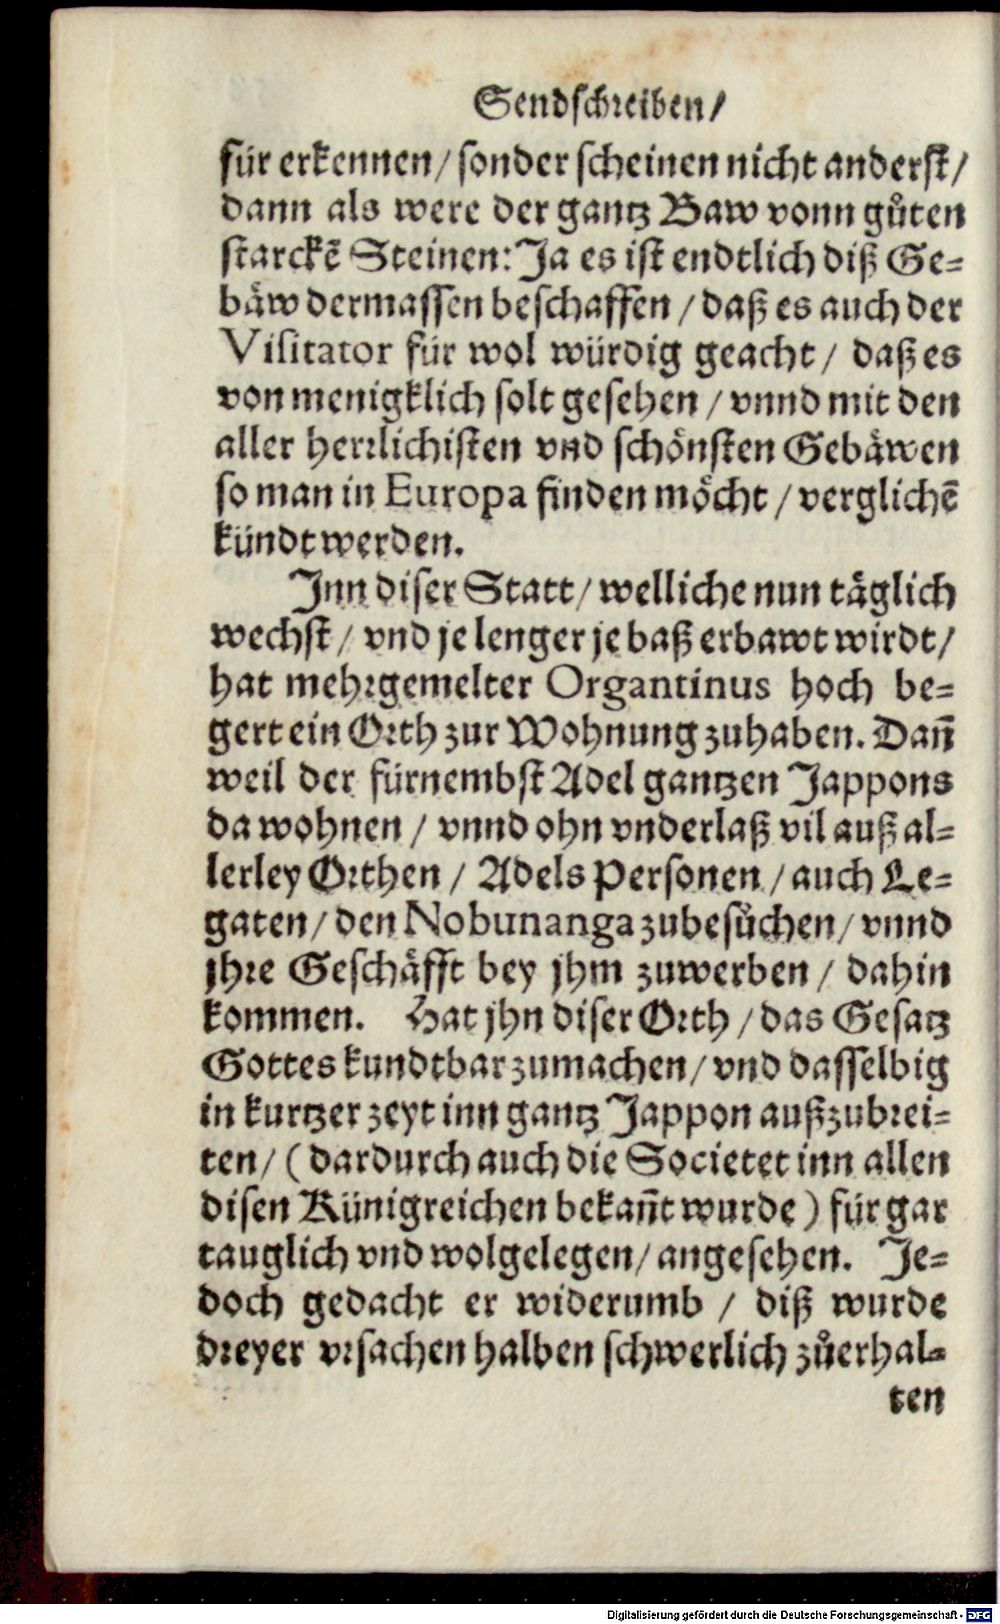 Sendschreiben/
für erkennen/ sonder scheinen nicht anderst/
dann als were der gantz Baw vonn gůten
starckẽ Steinen: Ja es ist endtlich diß Ge=
bäw dermassen beschaffen / daß es auch der
Visitator für wol würdig geacht / daß es
von menigklich solt gesehen / vnnd mit den
aller herrlichisten vnd schönsten Gebäwen
so man in Europa finden möcht / verglichẽ
kündt werden.
Inn diser Statt/ welliche nun täglich
wechst / vnd je lenger je baß erbawt wirdt/
hat mehrgemelter Organtinus hoch be=
gert ein Orth zur Wohnung zuhaben. Dañ
weil der fürnembst Adel gantzen Jappons
da wohnen / vnnd ohn vnderlaß vil auß al=
lerley Orthen / Adels Personen / auch Le=
gaten/ den Nobunanga zubesůchen/ vnnd
jhre Geschäfft bey jhm zuwerben / dahin
kommen. Hat jhn diser Orth / das Gesatz
Gottes kundtbar zumachen/ vnd dasselbig
in kurtzer zeyt inn gantz Jappon außzubrei=
ten/ (dardurch auch die Societet inn allen
disen Künigreichen bekañt wurde) für gar
tauglich vnd wolgelegen/ angesehen. Je=
doch gedacht er widerumb / diß wurde
dreyer vrsachen halben schwerlich zůerhal=
ten
Digitalisierung gefördert durch die Deutsche Forschungsgemeinschaft - DFG